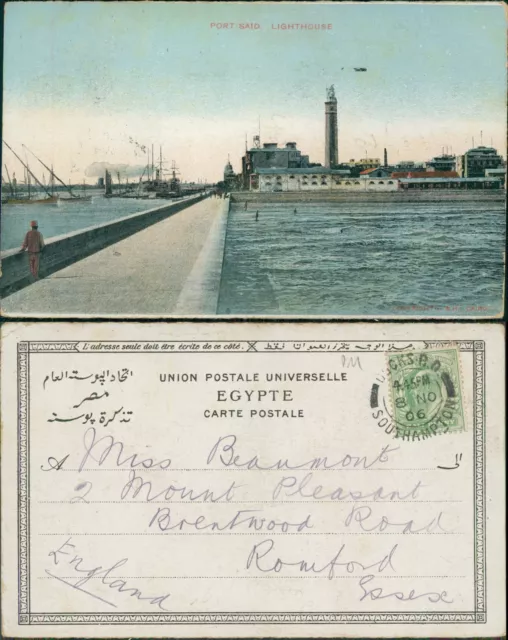 PORT SAID. LIGHTHOUSE
L'adresse seule doit être écrite de ce côté.
اتحاد البوستة العام
مصر
تذكرة بوستة
UNION POSTALE UNIVERSELLE
EGYPTE
CARTE POSTALE
DOCKS B.O.
4.45PM
8 NO
06
SOUTHAMPTON
A Miss Beaumont الى
2 Mount Pleasant
Brentwood Road
Romford
Essex
England